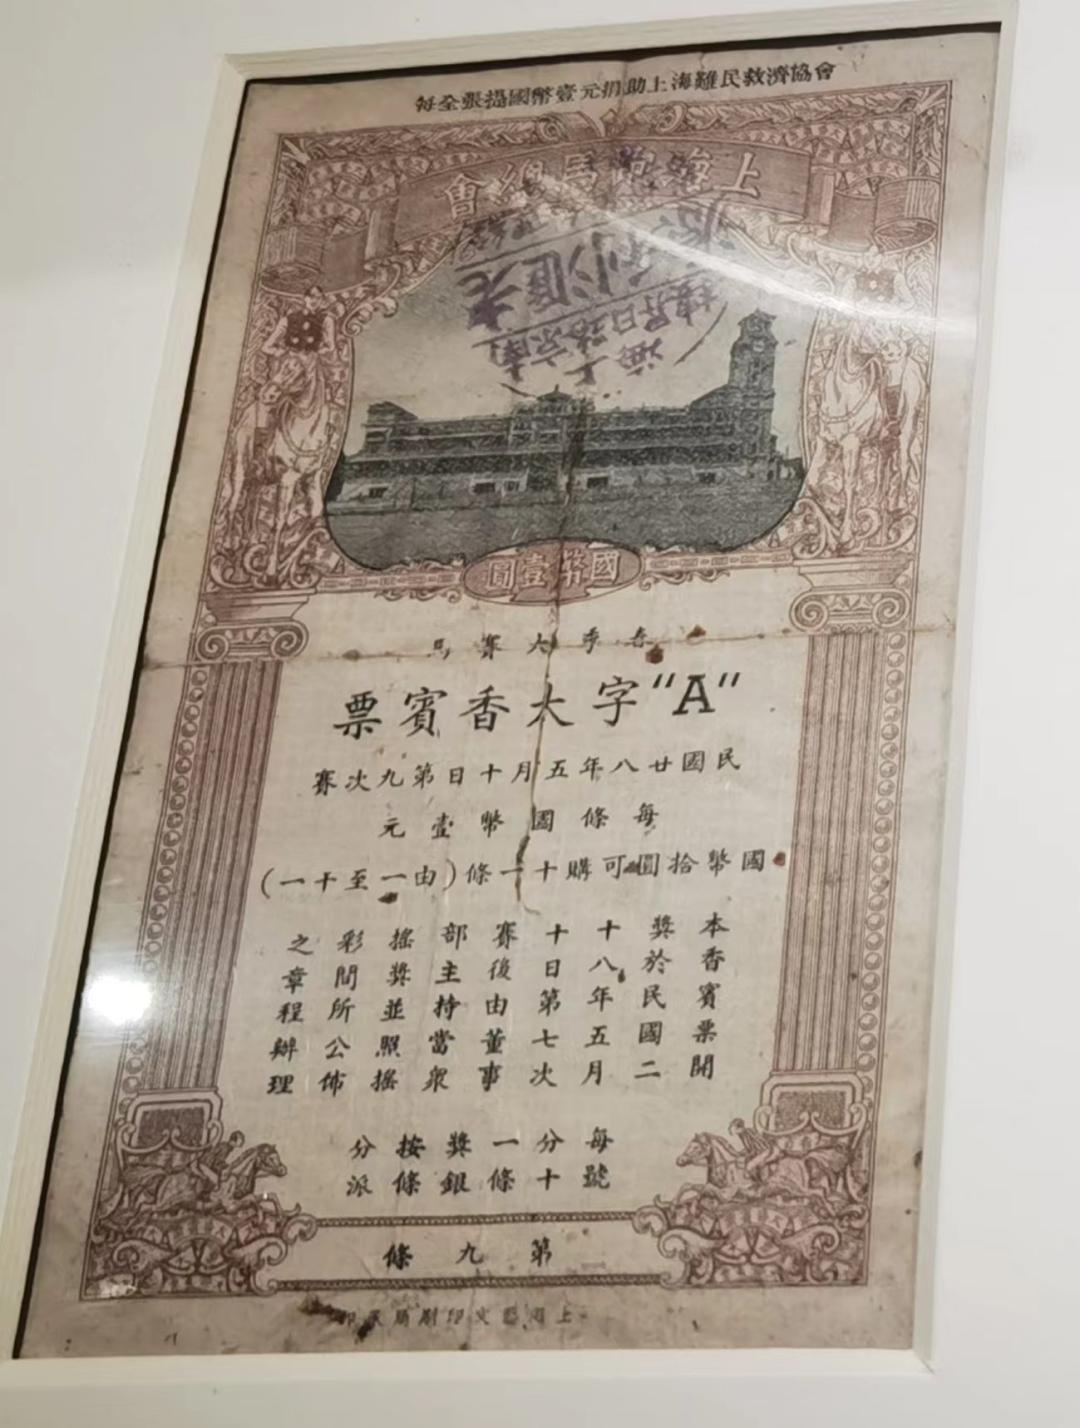 每全張撮國幣壹元捐助上海難民救濟協會
上海跑馬總會
上海
南京路日昇樓
老匯利
國幣壹圓
春季大賽馬
"A"字大香賓票
民國廿八年五月十日第九次賽
每條國幣壹元
國幣拾圓可購十一條(由一至十一)
本香賓票開
獎於民國二
十八年五月
十日第七次
賽後由董事
部主持當衆
搖獎並照搖
彩間所公佈
之章程辦理
每號
分十
一條
獎銀
按條
分派
第九條
上海藝文印刷局承印